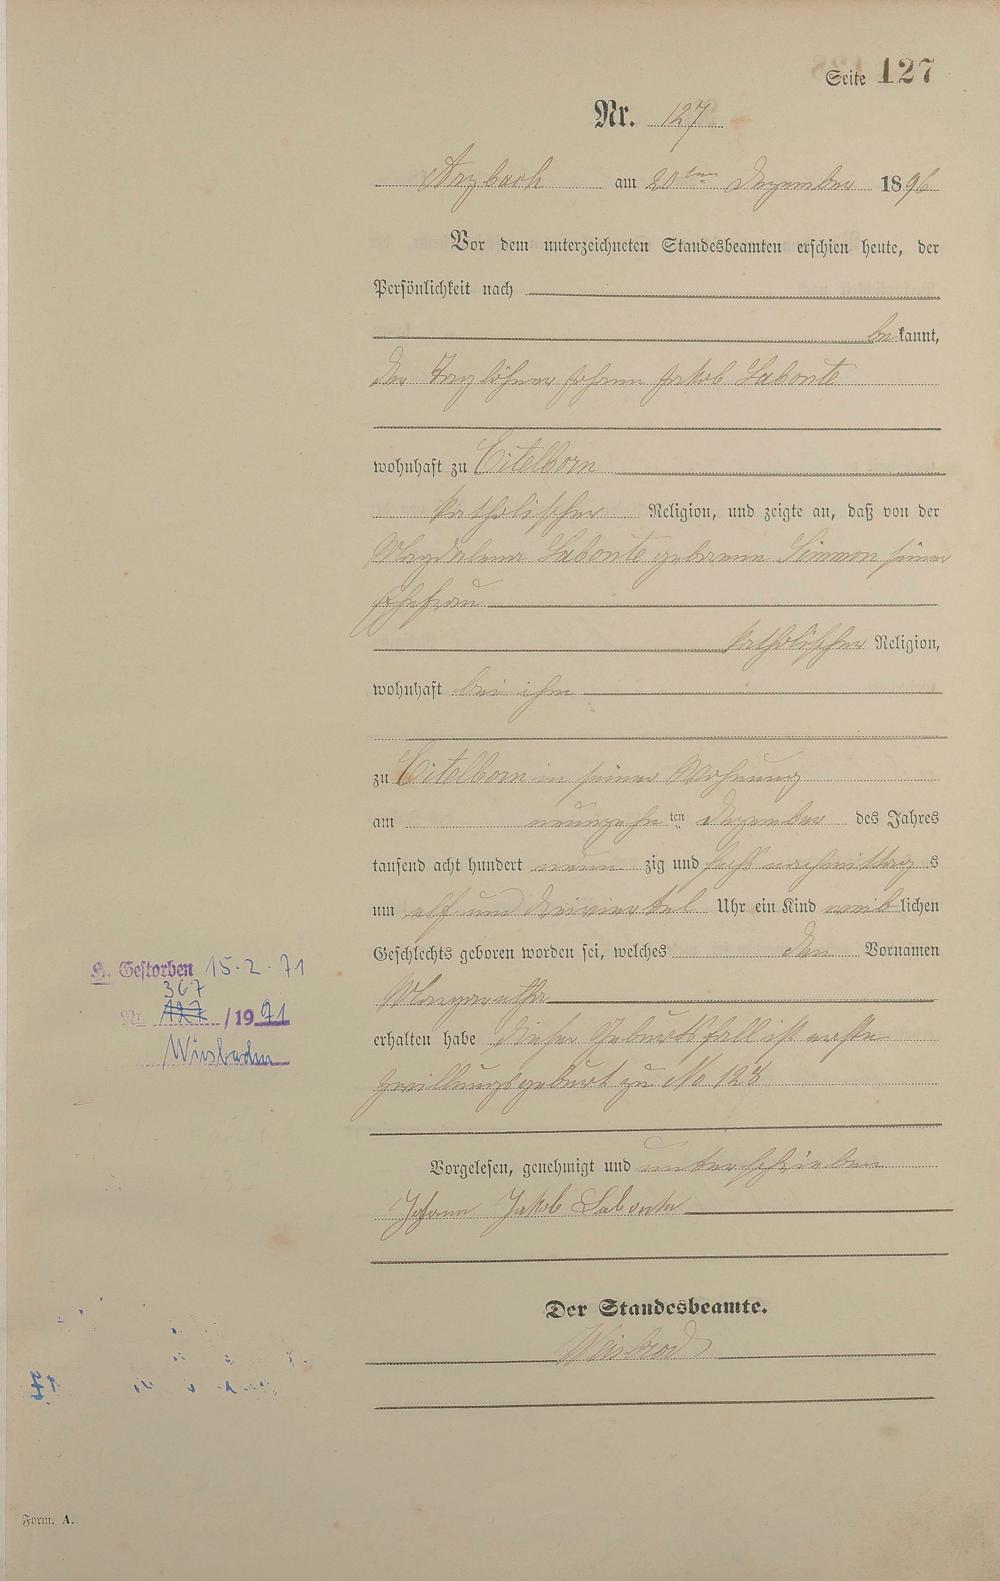 Seite 127
Nr. 127
Arzbach am 20ten Dezember 1896
Vor dem unterzeichneten Standesbeamten erschien heute, der
Persönlichkeit nach
bekannt,
der Taglöhner Johann Jakob Labonte
wohnhaft zu Eitelborn
katholischer Religion, und zeigte an, daß von der
Magdalena Labonte geborene Simmon seiner
Ehefrau
katholischer Religion,
wohnhaft bei ihm
zu Eitelborn in seiner Wohnung
am neunzehnten Dezember des Jahres
tausend acht hundert neunzig und sechs nachmittags
um elf und dreiviertel Uhr ein Kind weiblichen
Geschlechts geboren worden sei, welches den Vornamen
Margaretha
erhalten habe dieser Geburtsfall ist erste
Zwillingsgeburt zu No 128
Vorgelesen, genehmigt und unterschrieben
Johann Jakob Labonte
Der Standesbeamte.
Weisbrod
H. Gestorben 15.2.71
367
Nr. 127 /1971
Wiesbaden
Form. A.